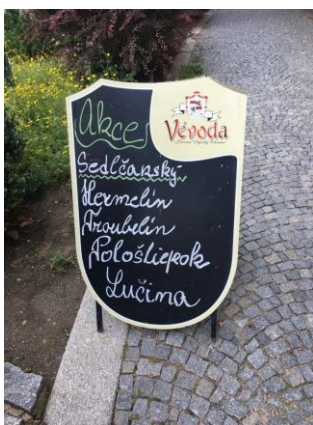 Akce
Vévoda
Sedlčanský
Hermelin
Troubelin
Pološliepek
Lučina